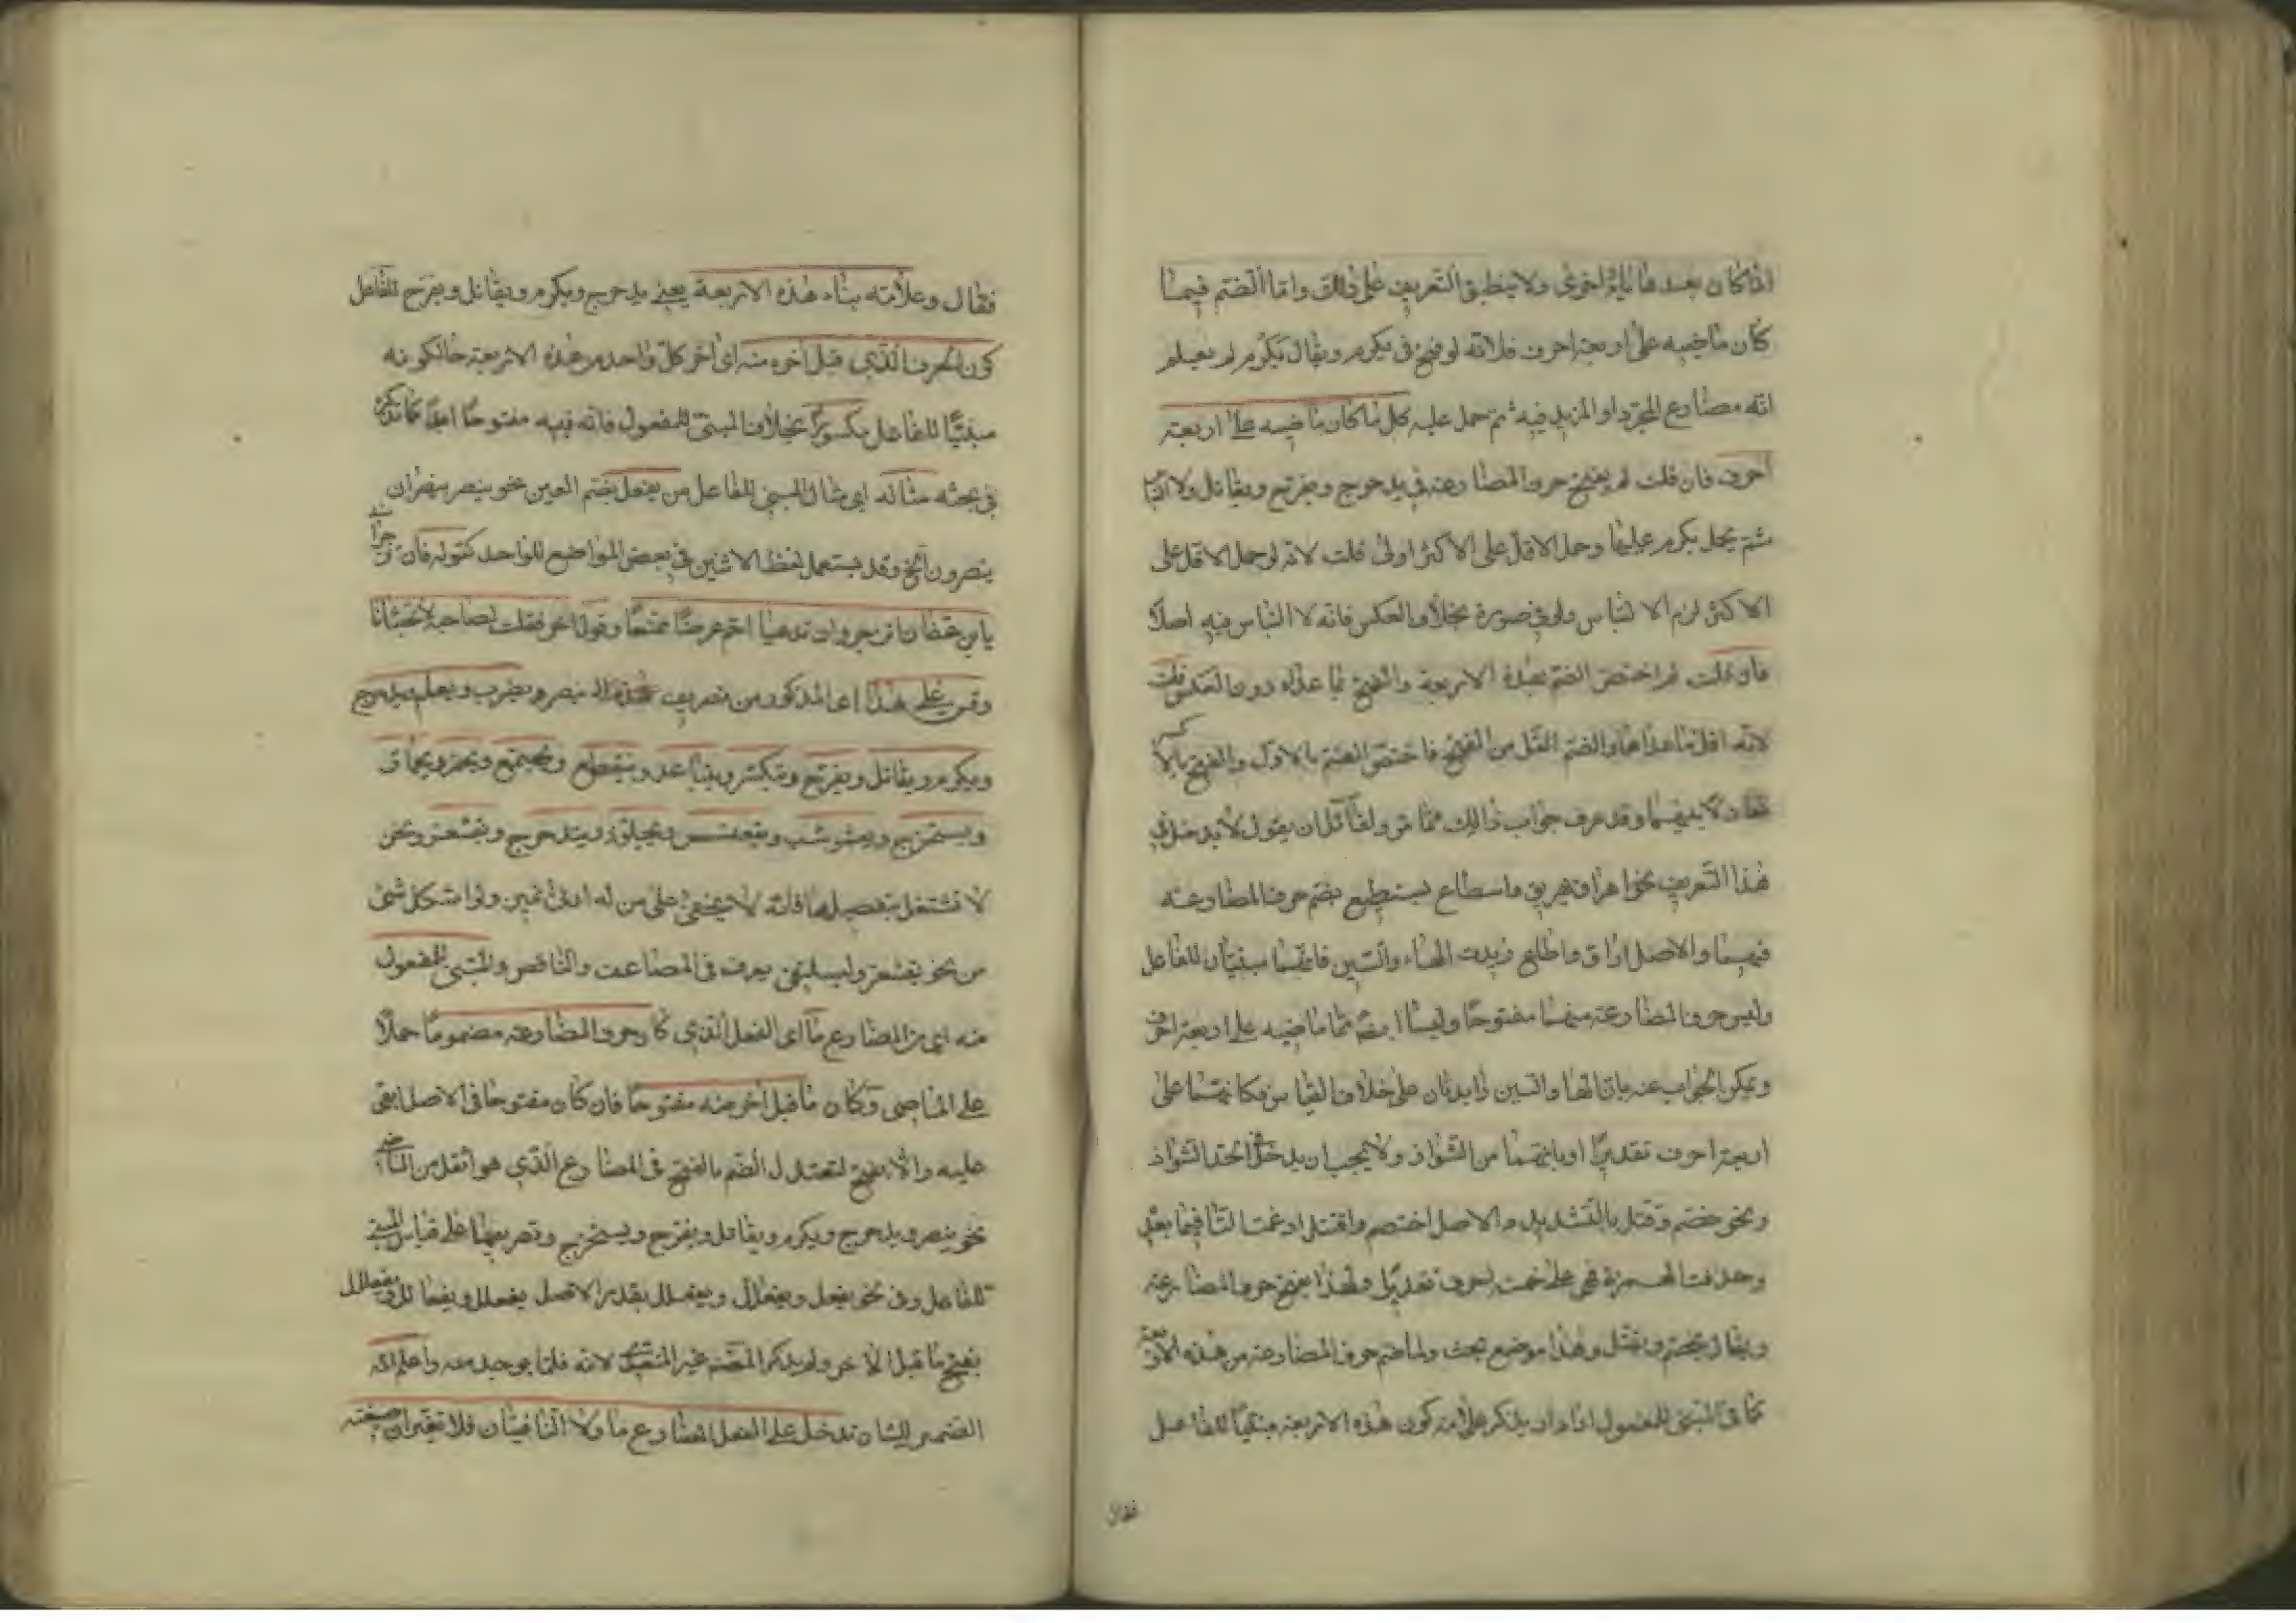 اذا كان بعدها ياء اخرى ولا ينطبق التعريف على ذلك واما الضم فيما
كان ماضيه على اربعة احرف فلانه لو فتح في يكرم ويقال يكرم لم يعلم
انه مضارع المجرد او المزيد فيه ثم حمل عليه كل ما كان ماضيه على اربعة
احرف فان قلت لم يفتح حرف المضارعة في يدحرج ويفرح ويقاتل ولا التباس
ثم يحمل يكرم عليها وحمل الاقل على الاكثر اولى قلت لانه لو حمل الاقل على
الاكثر لزم الالتباس ولو في صورة بخلاف العكس فانه لا التباس فيه اصلا
فان قلت لم اختص الضم بهذه الاربعة والفتح بما عداه دون العكس قلت
لانه اقل مما عداها والضم اثقل من الفتح فاختص الضم بالاول والفتح بالاكثر
تعادلا بينهما وقد عرف جواب ذلك مما مر ولقائل ان يقول لا يدخل في
هذا التعريف نحو اهراق يهريق واسطاع يسطيع بضم حرف المضارعة
فيهما والاصل اراق واطاع زيدت الهاء والسين فانهما مبنيان للفاعل
وليس حرف المضارعة منهما مفتوحا وليسا ايضا مما ماضيه على اربعة احرف
ويمكن الجواب عنه بان الهاء والسين زايدتان على خلاف القياس فكانهما على
اربعة احرف تقديرا او بانهما من الشواذ ولا يجب ان يدخل في الحد الشواذ
ونحو خصم وقتل بالتشديد والاصل اختصم واقتتل ادغمت التا فيما بعدها
وحذفت الهمزة فهي على خمسة احرف تقديرا ولهذا يفتح حرف المضارعة
ويقال يخصم ويقتل وهذا موضع بحث ولما ضم حرف المضارعة من هذه الاربعة
كما في المبني للمفعول اراد ان يذكر علامة كون هذه الاربعة مبنيا للفاعل
فقال
فقال وعلامة بناء هذه الاربعة يعني يدحرج ويكرم ويقاتل ويفرح للفاعل
كون الحرف الذي قبل اخره منه اي اخر كل واحد من هذه الاربعة حال كونه
مبنيا للفاعل مكسورا بخلاف المبني للمفعول فانه فيه مفتوحا ابدا كما نذكره
في بحثه مثاله اي مثال المبني للفاعل من يفعل بضم العين نحو ينصر ينصران
ينصرون الخ وقد يستعمل لفظ الاثنين في بعض المواضع للواحد كقوله فان تزجراني
يا ابن عفان انزجر وان تدعيا احم عرضا ممنعا وقول اخر فقلت لصاحبي لا تحبسانا
وقس على هذا اي المذكور من تصريف ينصر ويضرب ويعلم ويدحرج
ويكرم ويقاتل ويفرح ويتكسر ويتباعد وينقطع ويجتمع ويحمر ويحمار
ويستخرج ويعشوشب ويقعنسس ويجلوذ ويتدحرج ويقشعر ونحن
لا نشتغل بتفصيلها فانه لا يخفى على من له ادنى تمييز ولو اشكل شئ
من نحو يقشعر ويسلنقي يعرف في المضاعف والناقص والمبني للمفعول
منه اي من المضارع ما اي الفعل الذي كان حرف المضارعة مضموما حملا
على الماضي وكان ما قبل اخره منه مفتوحا فان كان مفتوحا في الاصل ابقي
عليه والا يفتح لتعتدل الضم بالفتح في المضارع الذي هو اثقل من الماضي
نحو ينصر ويدحرج ويكرم ويقاتل ويفرح ويستخرج وتصريفها على قياس المبني
للفاعل وفي نحو يفعل ويفعال ويفعلل يقدر الاصل يفعلل ويفعالل ويفعللل
بفتح ما قبل الاخر ولم يذكر المصنف غير المتعدي لانه قلما يوجد منه واعلم انه
الضمير للشان تدخل على الفعل المضارع ما ولا النافيتان فلا تغيران صيغته